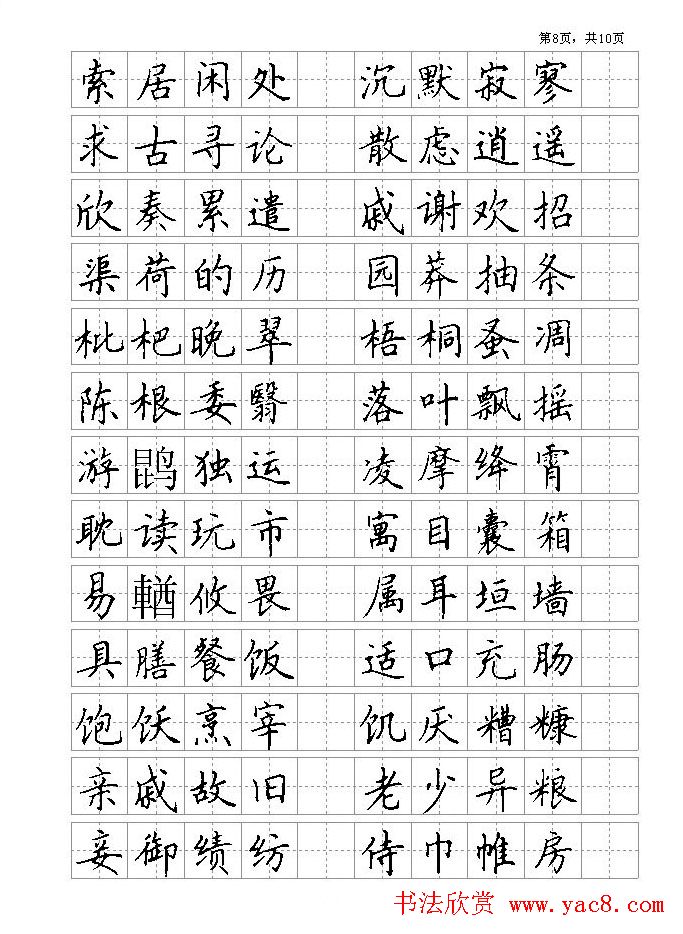 第8页，共10页
索居闲处 沉默寂寥
求古寻论 散虑逍遥
欣奏累遣 戚谢欢招
渠荷的历 园莽抽条
枇杷晚翠 梧桐蚤凋
陈根委翳 落叶飘摇
游鹍独运 凌摩绛霄
耽读玩市 寓目囊箱
易輶攸畏 属耳垣墙
具膳餐饭 适口充肠
饱饫烹宰 饥厌糟糠
亲戚故旧 老少异粮
妾御绩纺 侍巾帷房
书法欣赏 www.yac8.com